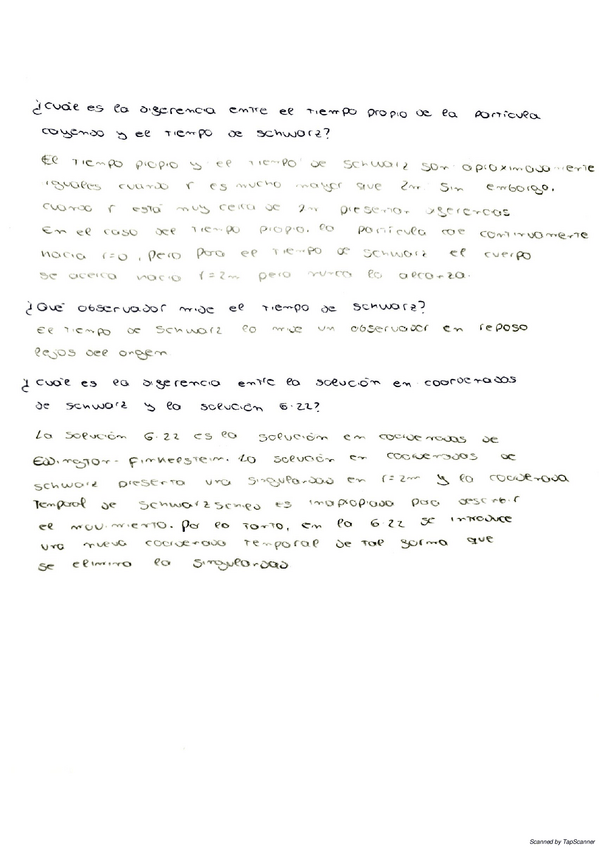 ¿Cuále es la diferencia entre el tiempo propio de la partícula
cayendo y el tiempo de schwarz?
El tiempo propio y el tiempo de schwarz son aproximadamente
iguales cuando r es mucho mayor que 2m. Sin embargo,
cuando r está muy cerca de 2m presentan diferencias
En el caso del tiempo propio, la partícula cae continuamente
hacia r=0, pero para el tiempo de schwarz el cuerpo
se acerca hacia r=2m pero nunca lo alcanza.
¿Qué observador mide el tiempo de schwarz?
El tiempo de schwarz lo mide un observador en reposo
lejos del origen
¿cuále es la diferencia entre la solución en coordenadas
de schwarz y la solución 6.22?
La solución 6.22 es la solución en coordenadas de
Eddington-Finkelstein. La solución en coordenadas de
schwarz presenta una singularidad en r=2m y la coordenada
temporal de schwarzschild es inapropiada para describir
el movimiento. Por lo tanto, en la 6.22 se introduce
una nueva coordenada temporal de tal forma que
se elimina la singularidad
Scanned by TapScanner